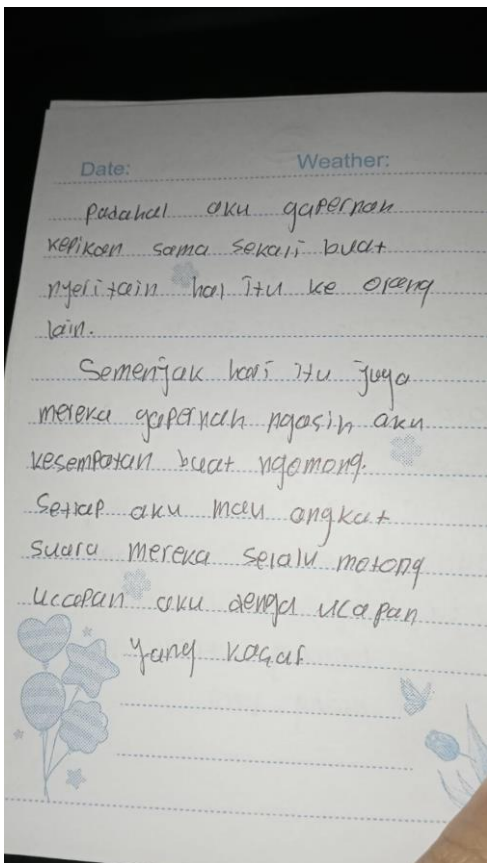 Date: Weather:
Padahal aku gapernah
kepikoan sama sekali buat
nyeritain hal itu ke orang
lain.
Semenjak hari itu juga
mereka gapernah ngasih aku
kesempatan buat ngomong.
Setiap aku mau angkat
suara mereka selalu motong
ucapan aku denga ucapan
yang kasar